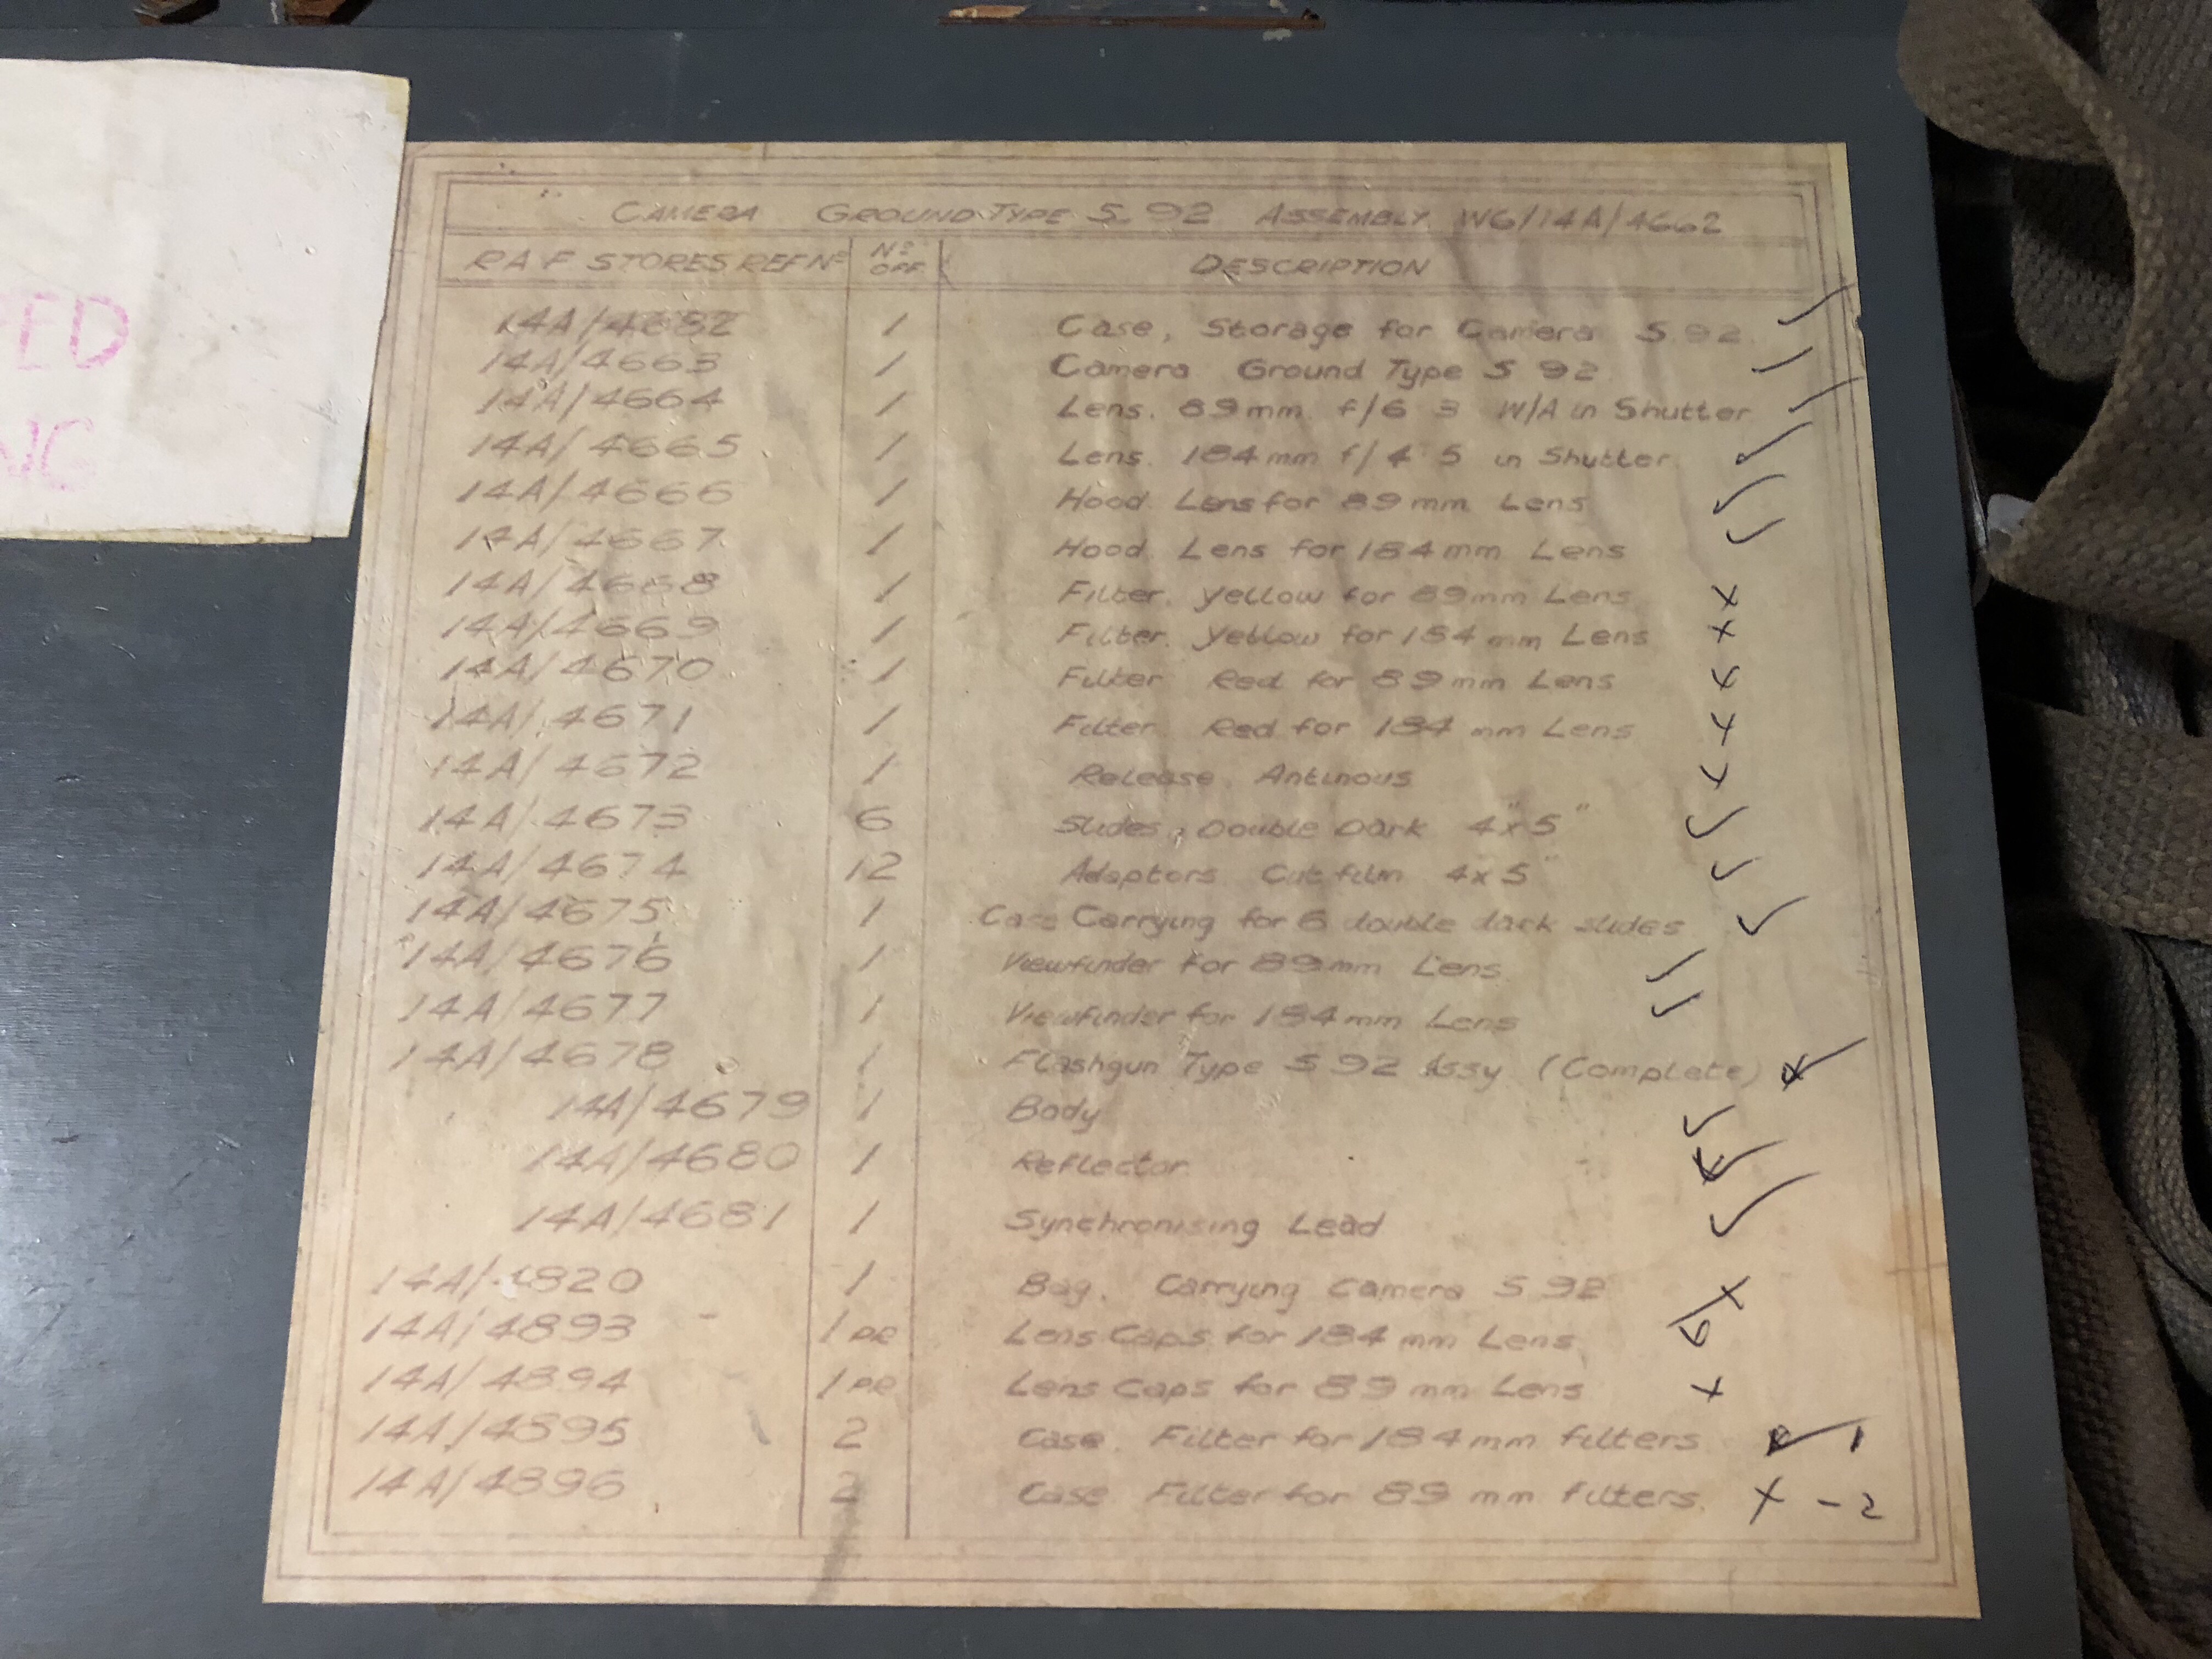 ED
NG
CAMERA GROUND TYPE S.92 ASSEMBLY WG/14A/4662
RAF STORES REF Nº Nº OFF DESCRIPTION
14A/4682 1 Case, Storage for Camera S.92. ✓
14A/4663 1 Camera Ground Type S 92 ✓
14A/4664 1 Lens. 89mm. f/6 3 W/A in Shutter ✓
14A/4665 1 Lens. 184mm f/4 5 in Shutter ✓
14A/4666 1 Hood Lens for 89mm Lens ✓
14A/4667 1 Hood. Lens for 184mm Lens ✓
14A/4668 1 Filter. Yellow for 89mm Lens x
14A/4669 1 Filter. Yellow for 184mm Lens x
14A/4670 1 Filter Red for 89mm Lens x
14A/4671 1 Filter. Red for 184 mm Lens x
14A/4672 1 Release. Antinous x
14A/4673 6 Slides, Double Dark 4"x5" ✓
14A/4674 12 Adaptors Cut film 4x5" ✓
14A/4675 1 Case Carrying for 6 double dark slides ✓
14A/4676 1 Viewfinder for 89mm Lens ✓
14A/4677 1 Viewfinder for 184mm Lens ✓
14A/4678 1 Flashgun Type S 92 Assy (Complete) ✓
14A/4679 1 Body ✓
14A/4680 1 Reflector ✓
14A/4681 1 Synchronising Lead ✓
14A/4820 1 Bag. Carrying Camera S 92 x
14A/4893 1 PR Lens Caps for 184 mm Lens
14A/4894 1 PR Lens Caps for 89 mm Lens x
14A/4895 2 Case. Filter for 184mm filters ✓ 1
14A/4896 2 Case Filter for 89 mm filters. x - 2